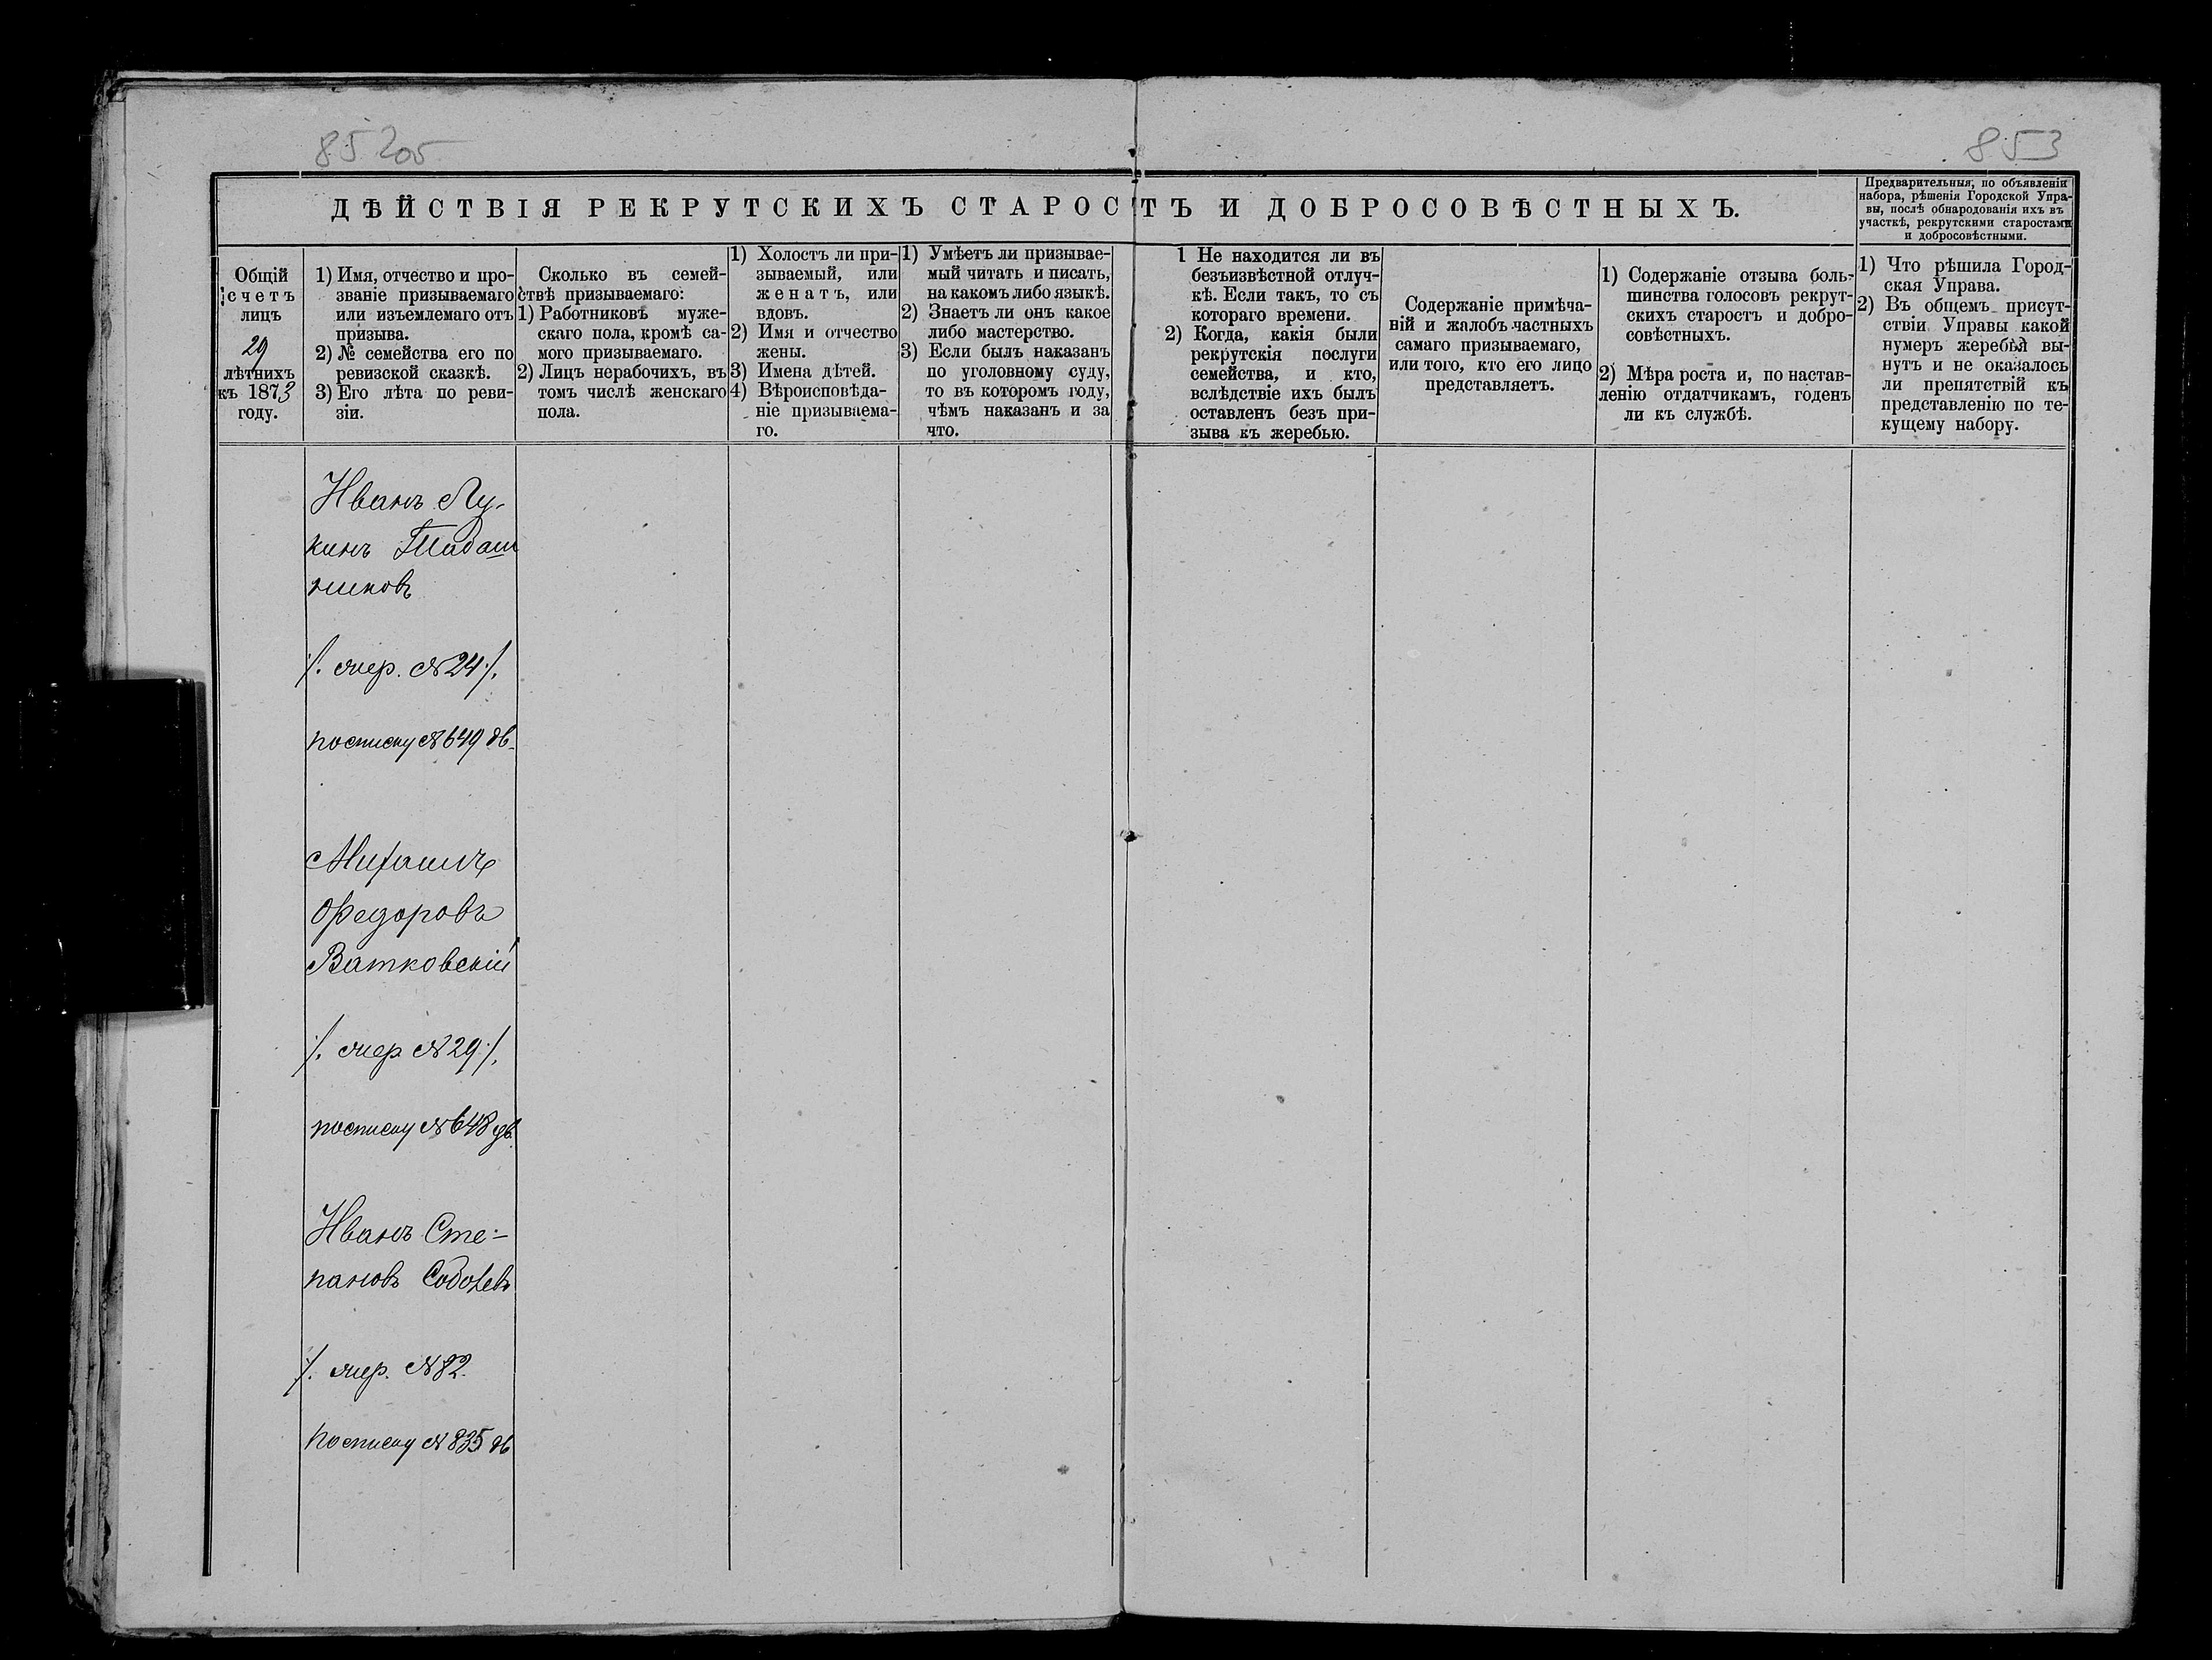 852об
853
ДѢЙСТВІЯ РЕКРУТСКИХЪ СТАРОСТЪ И ДОБРОСОВѢСТНЫХЪ.
Предварительныя, по объявленіи
набора, рѣшенія Городской Упра-
вы, послѣ обнародованія ихъ въ
участкѣ, рекрутскими старостами
и добросовѣстными.
Общій
счетъ
лицъ
29
лѣтнихъ
къ 1873
году.
1) Имя, отчество и про-
званіе призываемаго
или изъемлемаго отъ
призыва.
2) № семейства его по
ревизской сказкѣ.
3) Его лѣта по реви-
зіи.
Сколько въ семей-
ствѣ призываемаго:
1) Работниковѣ муже-
скаго пола, кромѣ са-
мого призываемаго.
2) Лицъ нерабочихъ, въ
томъ числѣ женскаго
пола.
1) Холостъ ли при-
зываемый, или
женатъ, или
вдовъ.
2) Имя и отчество
жены.
3) Имена дѣтей.
4) Вѣроисповѣда-
ніе призываема-
го.
1) Умѣетъ ли призывае-
мый читать и писать,
на какомъ либо языкѣ.
2) Знаетъ ли онъ какое
либо мастерство.
3) Если былъ наказанъ
по уголовному суду,
то въ которомъ году,
чѣмъ наказанъ и за
что.
1 Не находится ли въ
безъизвѣстной отлуч-
кѣ. Если такъ, то съ
котораго времени.
2) Когда, какія были
рекрутскія послуги
семейства, и кто,
вслѣдствіе ихъ былъ
оставленъ безъ при-
зыва къ жеребью.
Содержаніе примѣча-
ній и жалобъ частныхъ
самаго призываемаго,
или того, кто его лицо
представляетъ.
1) Содержаніе отзыва боль-
шинства голосовъ рекрут-
скихъ старостъ и добро-
совѣстныхъ.
2) Мѣра роста и, по настав-
ленію отдатчикамъ, годенъ
ли къ службѣ.
1) Что рѣшила Город-
ская Управа.
2) Въ общемъ присут-
ствіи Управы какой
нумеръ жеребья вы-
нутъ и не оказалось
ли препятствій къ
представленію по те-
кущему набору.
Иванъ Лу-
кинъ
никовъ
/. мер. №24 ./.
по списку №649 дв.
Михаилъ
Федоровъ
Ватковскій
/. мер №29 ./.
по списку №648 дв.
Иванъ Сте-
пановъ Соболевъ
/. мер. №82.
по списку №835 дв